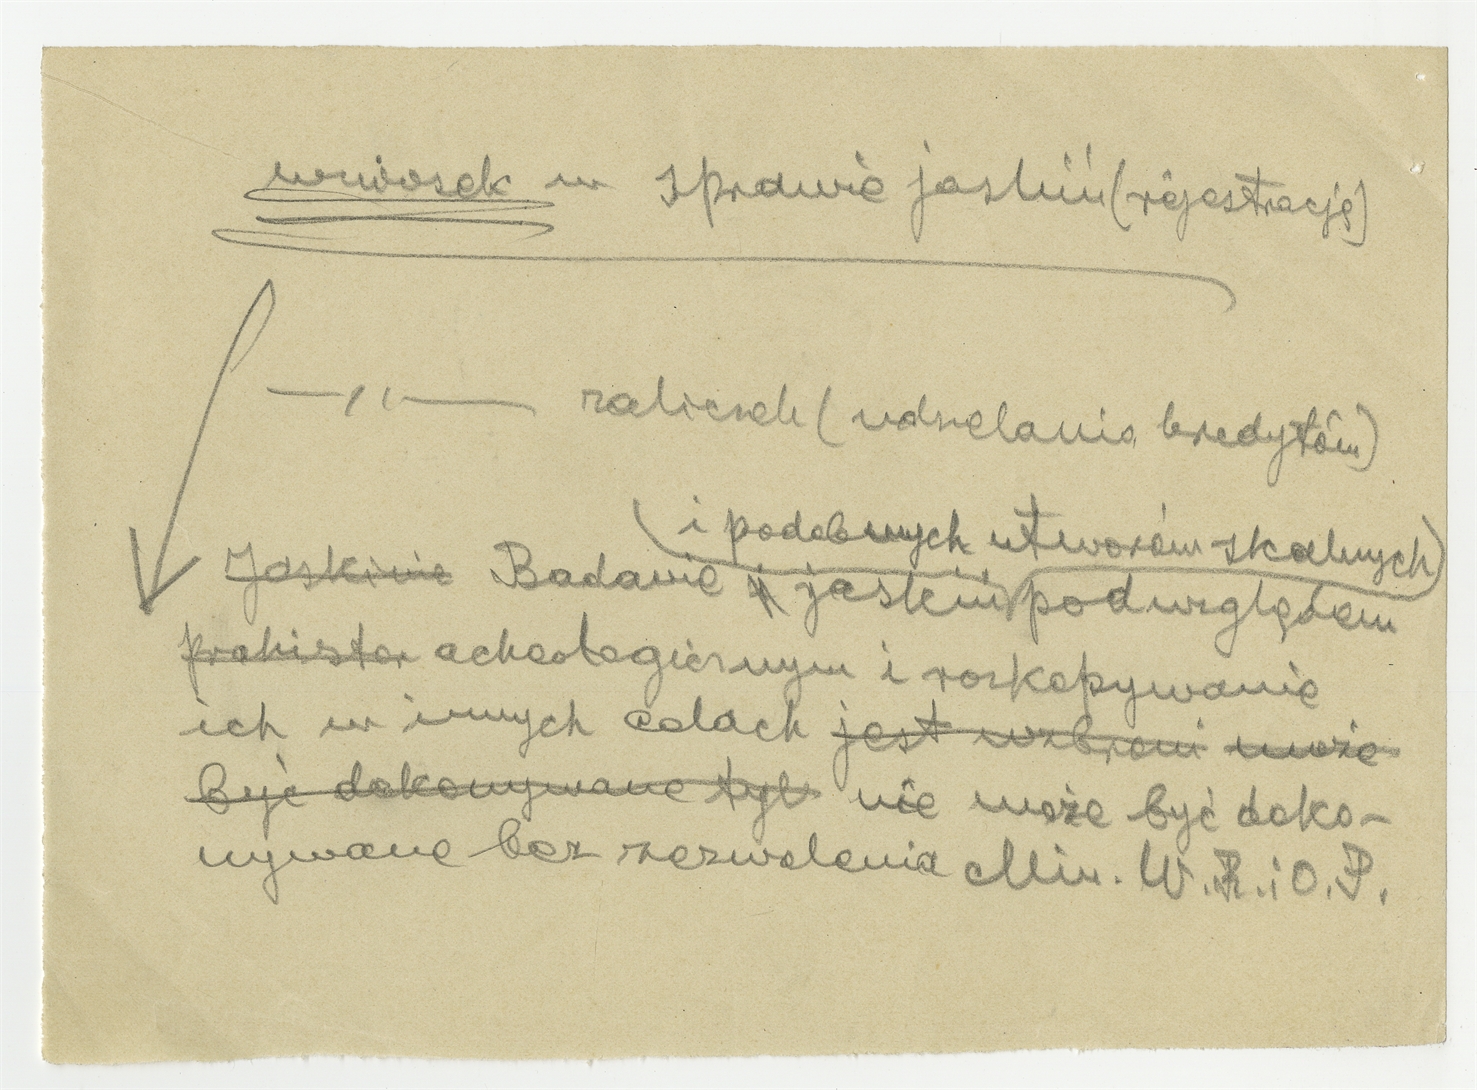 wniosek w sprawie jaskiń (rejestrację)
—〃— zaliczek (udzielania kredytów)
i podobnych utworów skalnych
Jaskinie Badanie jaskiń pod względem
prehistor acheologicznym i rozkopywanie
ich w innych celach jest wzbroni może
być dokonywane tyl nie może być doko-
nywane bez zezwolenia Min. W.R.i O.P.